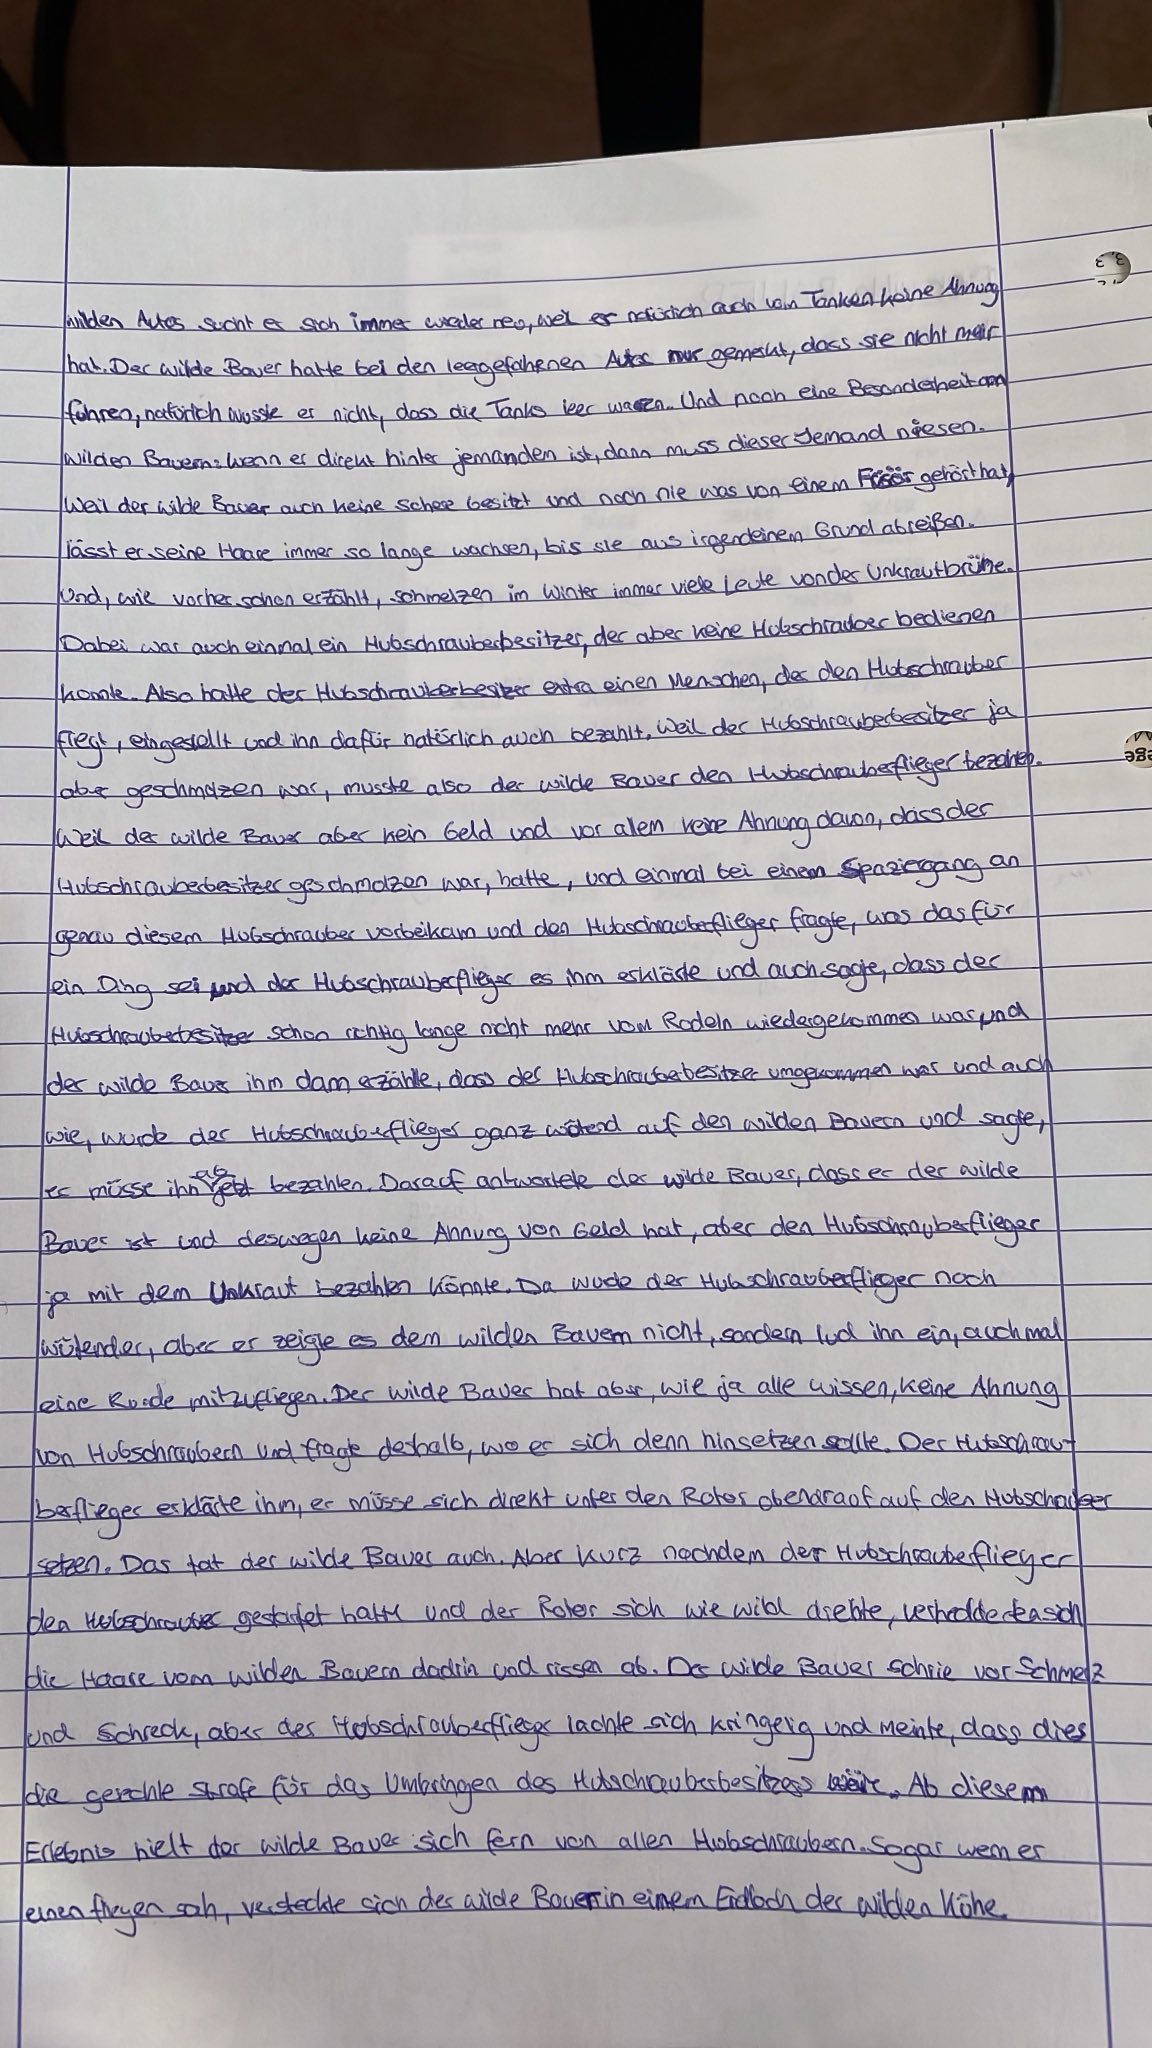 wilden Autos sucht er sich immer wieder neu, weil er natürlich auch vom Tanken keine Ahnung
hat. Der wilde Bauer hatte bei den leergefahrenen Autos nur gemerkt, dass sie nicht mehr
fuhren, natürlich wusste er nicht, dass die Tanks leer waren. Und noch eine Besonderheit am
wilden Bauern: wenn er direkt hinter jemandem ist, dann muss dieser Jemand niesen.
Weil der wilde Bauer auch keine Schere besitzt und noch nie was von einem Frisör gehört hat,
lässt er seine Haare immer so lange wachsen, bis sie aus irgendeinem Grund abreißen.
Und, wie vorher schon erzählt, schmelzen im Winter immer viele Leute von der Unkrautbrühe.
Dabei war auch einmal ein Hubschrauberbesitzer, der aber keine Hubschrauber bedienen
konnte. Also hatte der Hubschrauberbesitzer extra einen Menschen, der den Hubschrauber
fliegt, eingestellt und ihn dafür natürlich auch bezahlt. Weil der Hubschrauberbesitzer ja
aber geschmolzen war, musste also der wilde Bauer den Hubschrauberflieger bezahlen.
Weil der wilde Bauer aber kein Geld und vor allem keine Ahnung davon, dass der
Hubschrauberbesitzer geschmolzen war, hatte, und einmal bei einem Spaziergang an
genau diesem Hubschrauber vorbeikam und den Hubschrauberflieger fragte, was das für
ein Ding sei und der Hubschrauberflieger es ihm erklärte und auch sagte, dass der
Hubschrauberbesitzer schon richtig lange nicht mehr vom Rodeln wiedergekommen war und
der wilde Bauer ihm dann erzählte, dass der Hubschrauberbesitzer umgekommen war und auch
wie, wurde der Hubschrauberflieger ganz wütend auf den wilden Bauern und sagte,
er müsse ihn ab jetzt bezahlen. Darauf antwortete der wilde Bauer, dass er der wilde
Bauer ist und deswegen keine Ahnung von Geld hat, aber den Hubschrauberflieger
ja mit dem Unkraut bezahlen könnte. Da wurde der Hubschrauberflieger noch
wütender, aber er zeigte es dem wilden Bauern nicht, sondern lud ihn ein, auch mal
eine Runde mitzufliegen. Der wilde Bauer hat aber, wie ja alle wissen, keine Ahnung
von Hubschraubern und fragte deshalb, wo er sich denn hinsetzen sollte. Der Hubschrau-
berflieger erklärte ihm, er müsse sich direkt unter den Rotor obendrauf auf den Hubschrauber
setzen. Das tat der wilde Bauer auch. Aber kurz nachdem der Hubschrauberflieger
den Hubschrauber gestartet hatte und der Rotor sich wie wild drehte, verhedderten sich
die Haare vom wilden Bauern dadrin und rissen ab. Der wilde Bauer schrie vor Schmerz
und Schreck, aber der Hubschrauberflieger lachte sich kringerig und meinte, dass dies
die gerechte Strafe für das Umbringen des Hubschrauberbesitzers wäre. Ab diesem
Erlebnis hielt der wilde Bauer sich fern von allen Hubschraubern. Sogar wenn er
einen fliegen sah, versteckte sich der wilde Bauer in einem Erdloch der wilden Kühe.